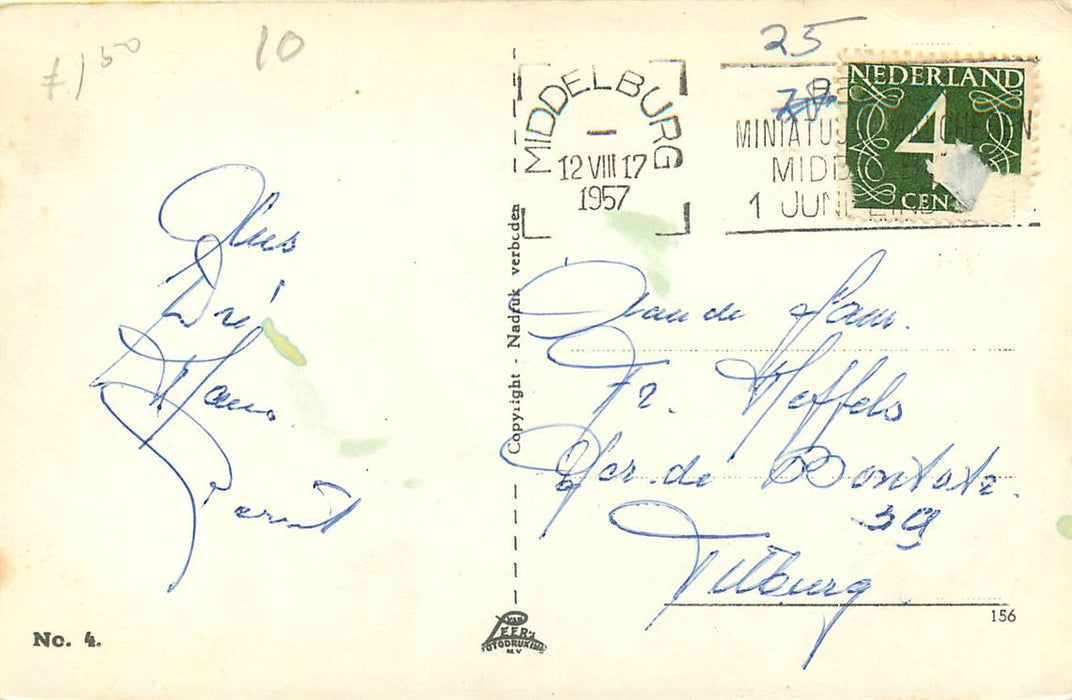 £1 50
10
25
MIDDELBURG
12 VIII 17
1957
MINIATUUR
MIDD
1 JUNI EIND
NEDERLAND
4
CENT
Dré
Hans
Copyright - Nadruk verboden
Aan de Fam.
Fr. Heffels
de Bontstr.
39
Tilburg
No. 4.
VAN LEER'S
FOTODRUKIND.
N.V.
156